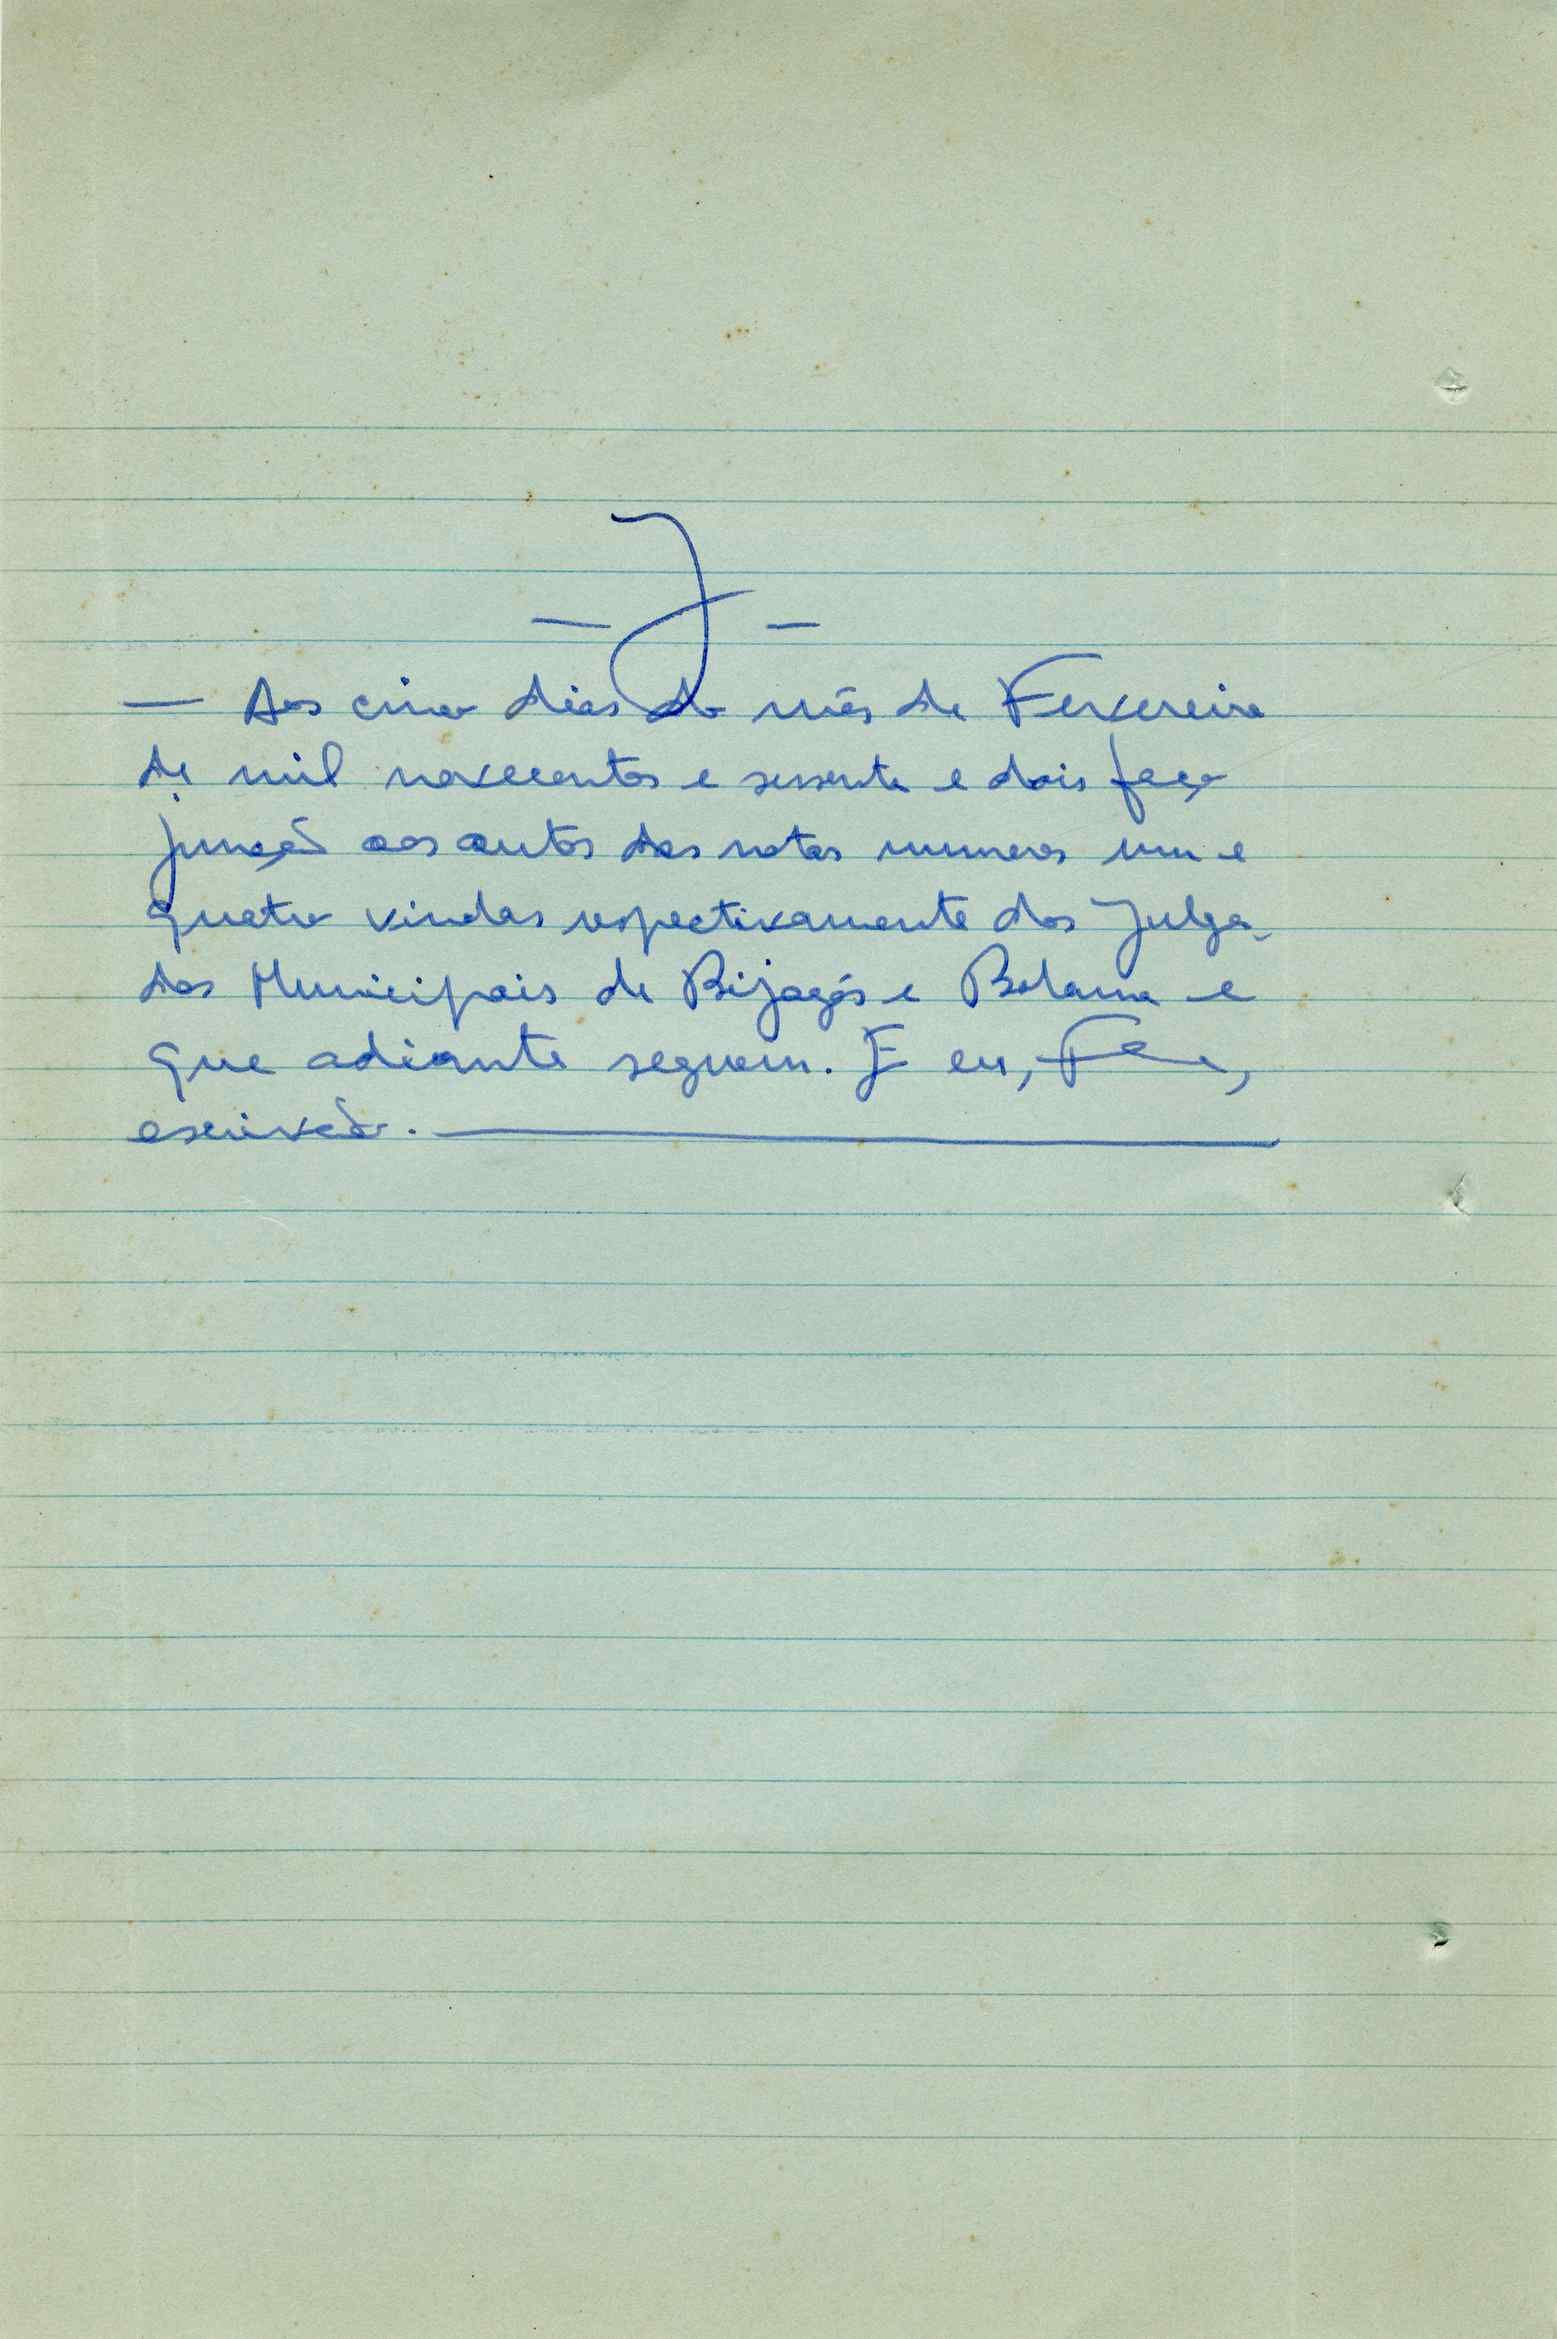 — J —
— Aos cinco dias do mês de Fevereiro
de mil novecentos e sessenta e dois faço
junção aos autos das notas numeros um e
quatro vindas respectivamente dos Julga-
dos Municipais de Bijagós e Bolama e
que adiante seguem. E eu,
escrivão.